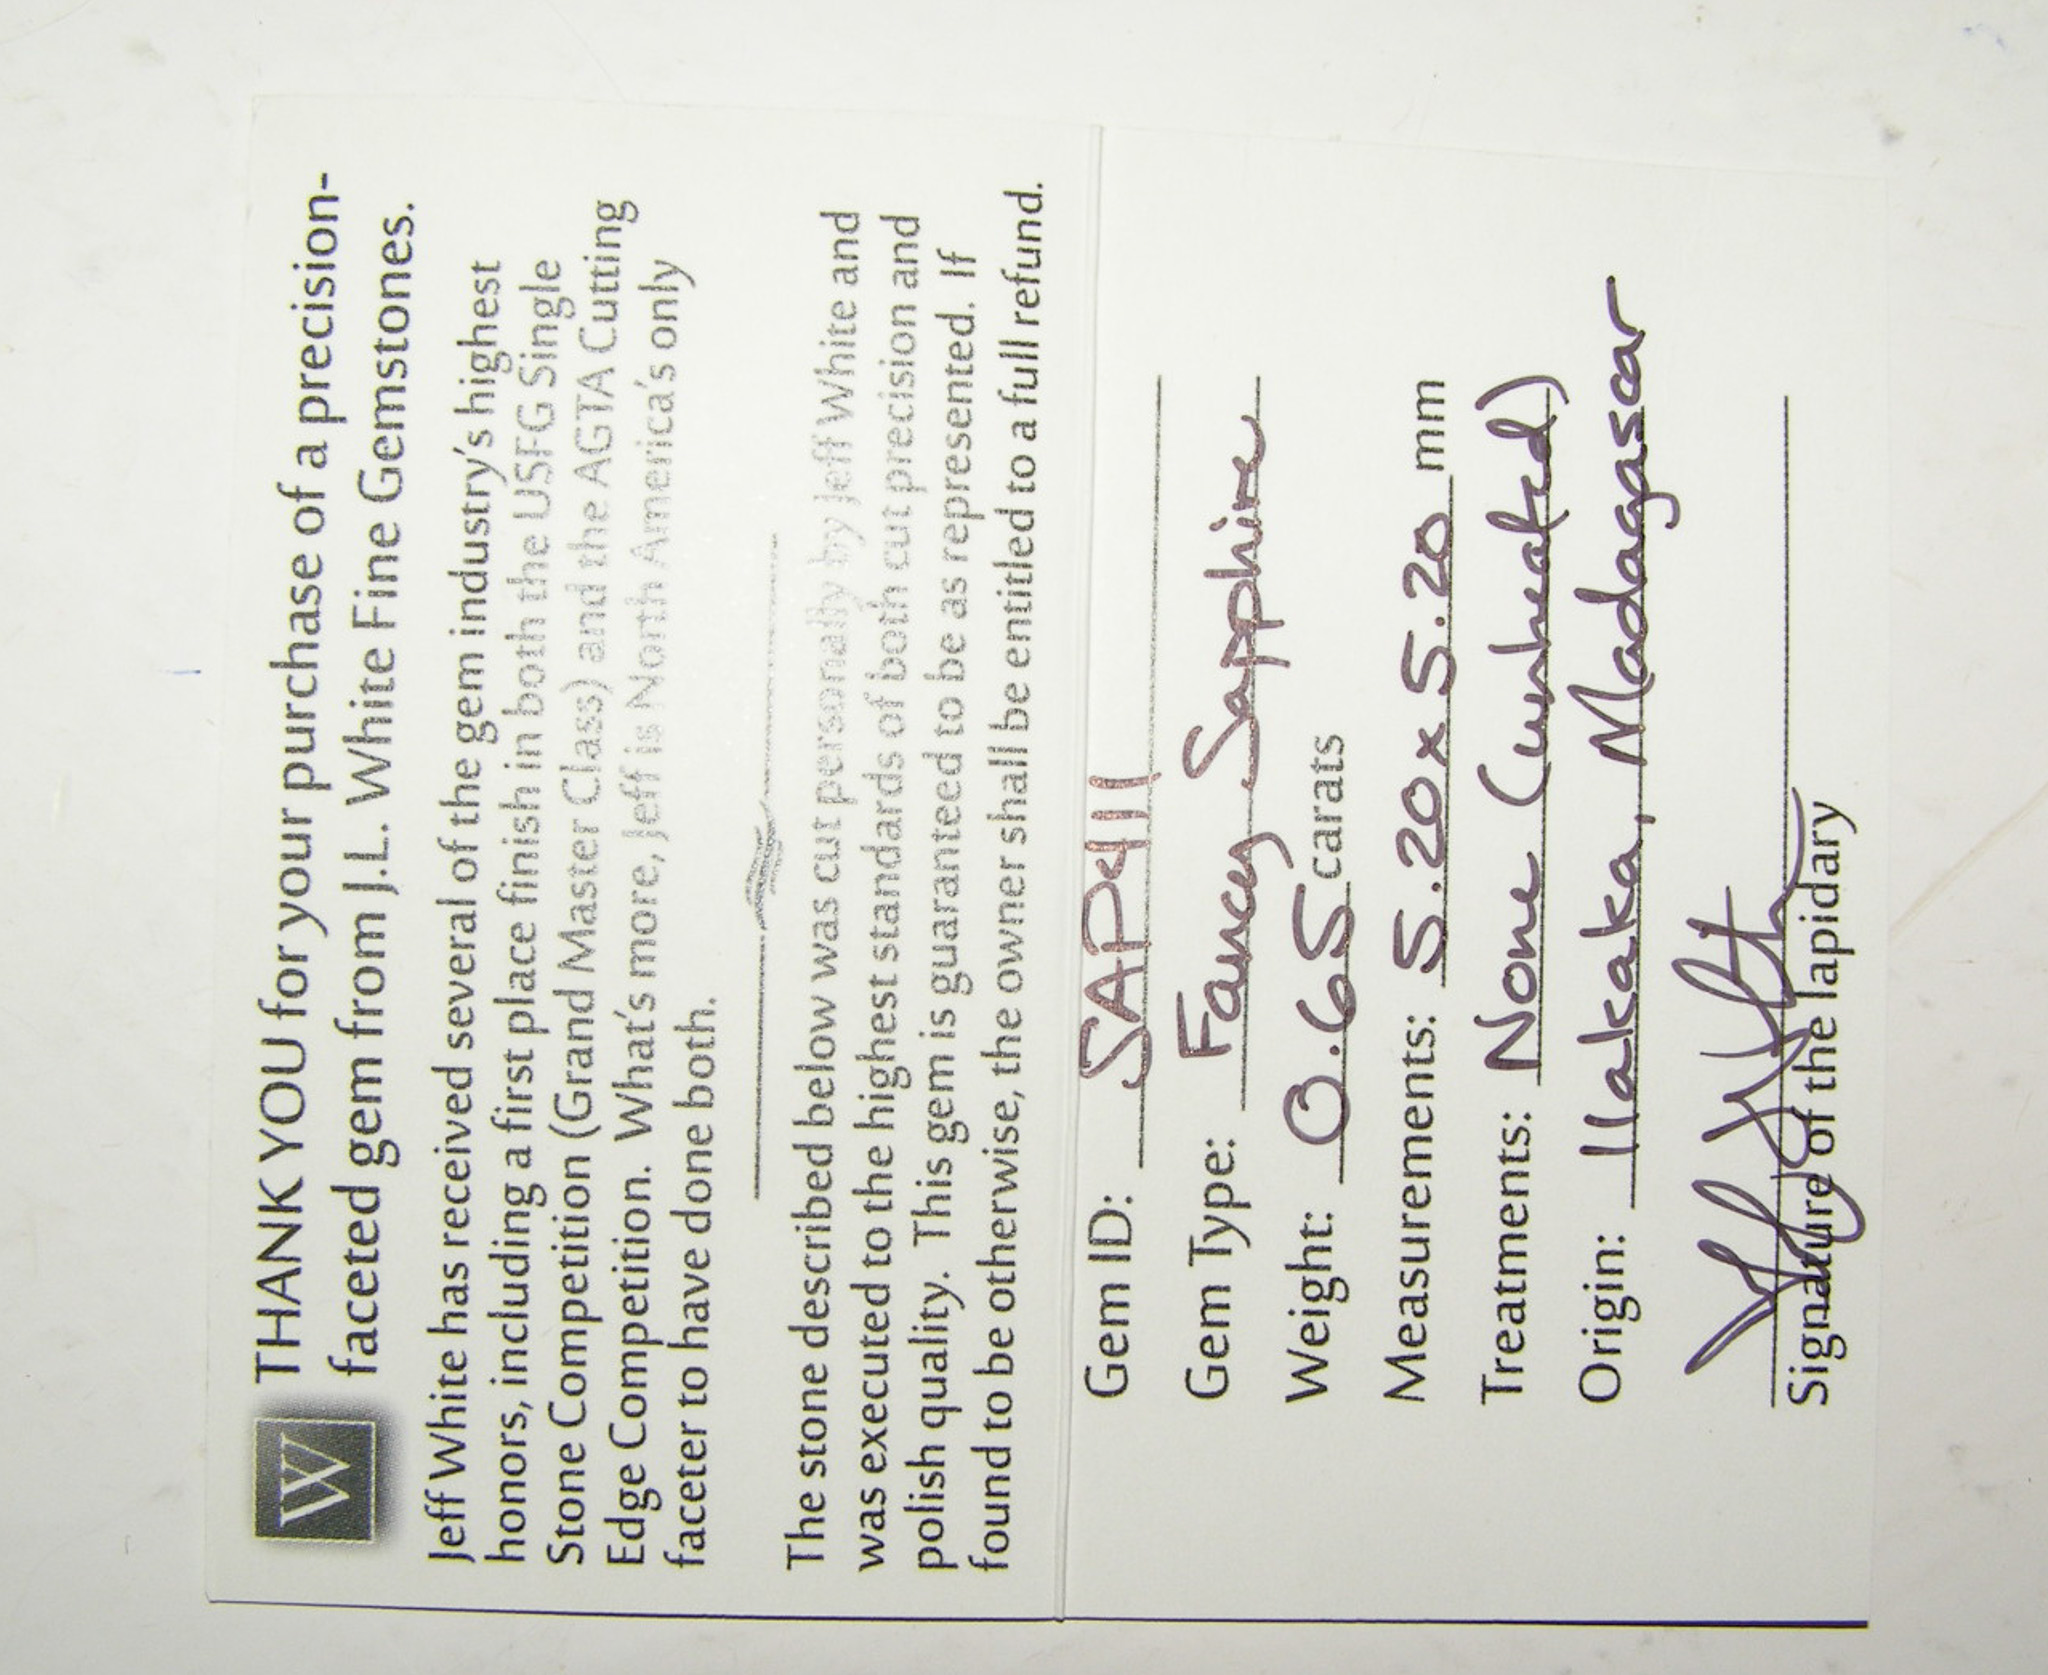 W
THANK YOU for your purchase of a precision-
faceted gem from J.L. White Fine Gemstones.
Jeff White has received several of the gem industry's highest
honors, including a first place finish in both the USFG Single
Stone Competition (Grand Master Class) and the AGTA Cutting
Edge Competition. What's more, Jeff is North America's only
faceter to have done both.
The stone described below was cut personally by Jeff White and
was executed to the highest standards of both cut precision and
polish quality. This gem is guaranteed to be as represented. If
found to be otherwise, the owner shall be entitled to a full refund.
Gem ID: SAP411
Gem Type: Fancy Sapphire
Weight: 0.65 carats
Measurements: 5.20 x 5.20 mm
Treatments: None (unheated)
Origin: Ilakaka, Madagascar
Signature of the lapidary